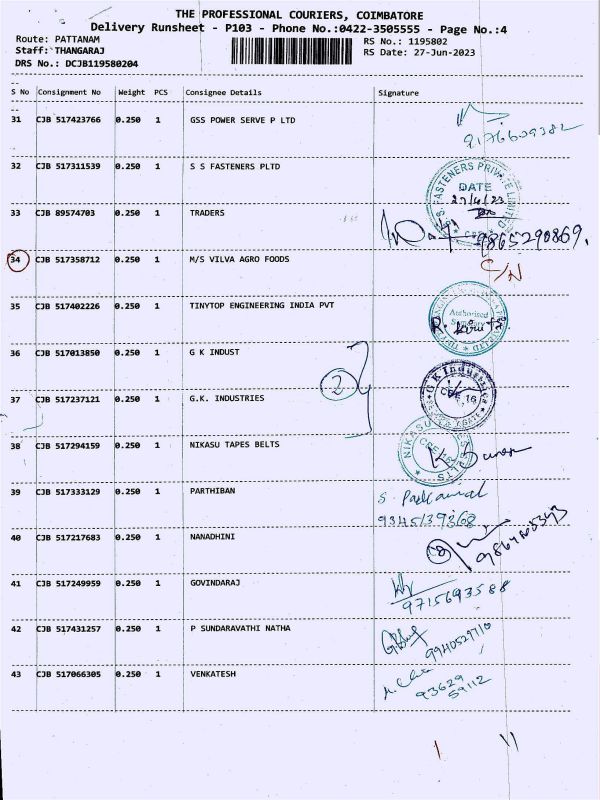 THE PROFESSIONAL COURIERS, COIMBATORE
Delivery Runsheet - P103 - Phone No.:0422-3505555 - Page No.:4
Route: PATTANAM
RS No.: 1195802
Staff: THANGARAJ
RS Date: 27-Jun-2023
DRS No.: DCJB119580204
S No Consignment No Weight PCS Consignee Details Signature
31 CJB 517423766 0.250 1 GSS POWER SERVE P LTD
32 CJB 517311539 0.250 1 S S FASTENERS PLTD
S.S. FASTENERS PRIVATE LIMITED
DATE
33 CJB 89574703 0.250 1 TRADERS
9865290869.
34 CJB 517358712 0.250 1 M/S VILVA AGRO FOODS
C/N
35 CJB 517402226 0.250 1 TINYTOP ENGINEERING INDIA PVT
Authorised
36 CJB 517013850 0.250 1 G K INDUST
2
G K Industries
37 CJB 517237121 0.250 1 G.K. INDUSTRIES
38 CJB 517294159 0.250 1 NIKASU TAPES BELTS
NIKASU
39 CJB 517333129 0.250 1 PARTHIBAN
9345139368
40 CJB 517217683 0.250 1 NANADHINI
41 CJB 517249959 0.250 1 GOVINDARAJ
9715693588
42 CJB 517431257 0.250 1 P SUNDARAVATHI NATHA
9940529710
43 CJB 517066305 0.250 1 VENKATESH
93629
59112